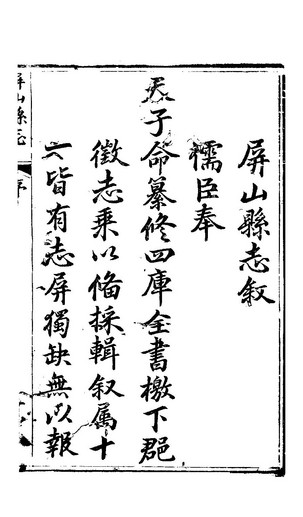 屏山縣志叙
儒臣奉
天子命纂修四庫全書檄下郡
徵志乘以備採輯叙属十
皆有志屏獨缺無以報
屏山縣志
序